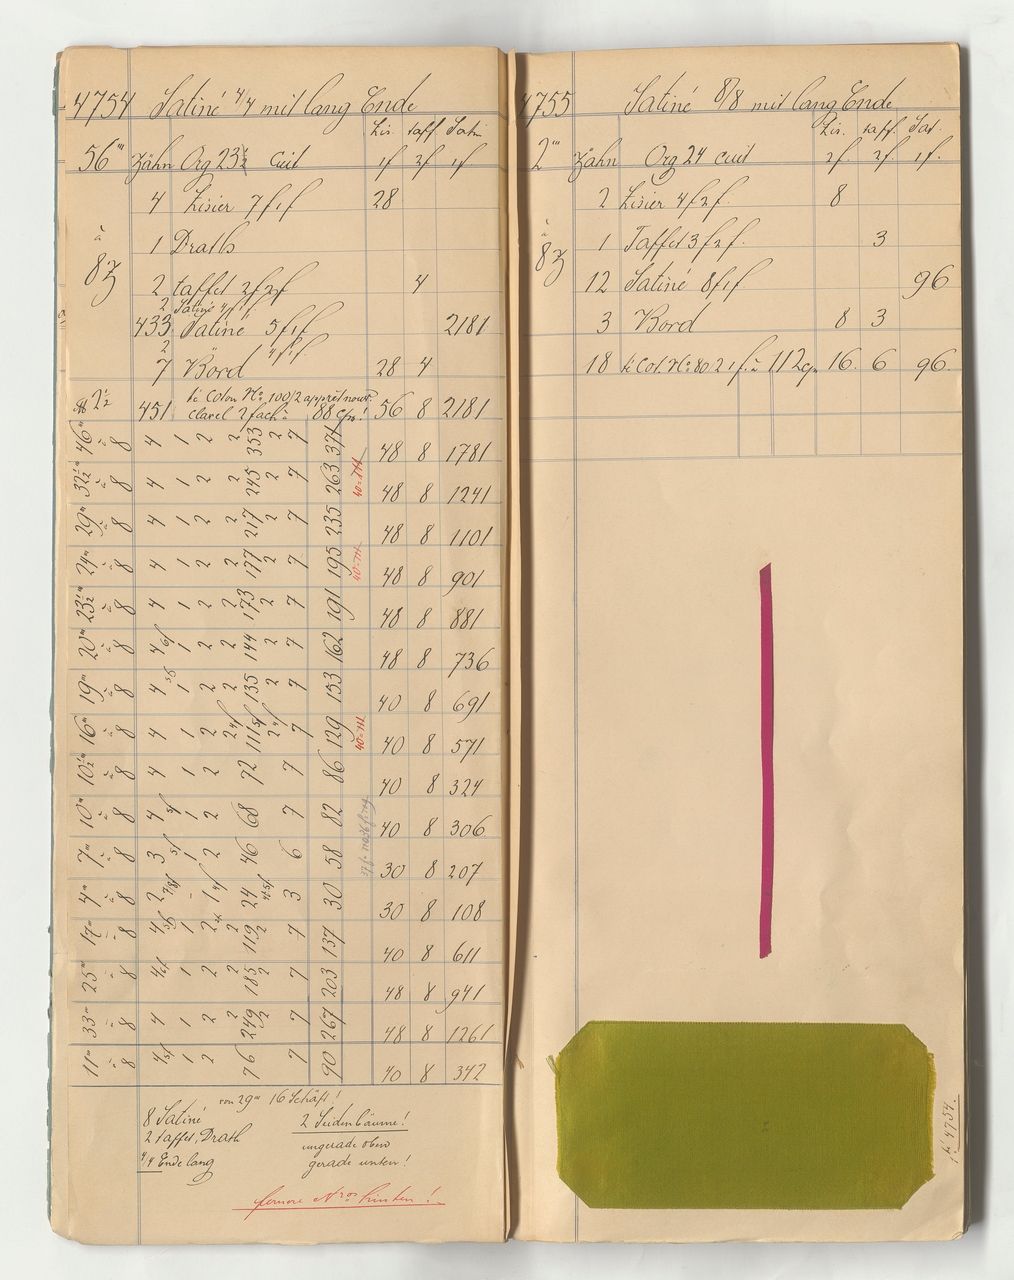 4754 Satiné 4/4 mit lang Ende
Lis. taff Satin
56''' Zähn Org 23½ cuit 1f 2f 1f
4 Lisier 7f1f 28
1 Drath
à 8Z
2 taffet 2f2f 4
2 Satiné 4f1f
433 Satiné 5f1f 2181
2 4f1f
7 Bord 28 4
2½ 451 Colon No 100/2 apprêt nouv. 56 8 2181
clarel 2fach à 88 cm!
46''' à 8 4 1 2 2 353 2 7 371 48 8 1781
32½''' à 8 4 1 2 2 245 2 7 263 48 8 1241
29''' à 8 4 1 2 2 217 2 7 235 48 8 1101
24''' à 8 4 1 2 2 177 2 7 195 48 8 901
23½''' à 8 4 1 2 2 173 2 7 191 48 8 881
20''' à 8 4 6f 1 2 2 144 2 7 162 48 8 736
19''' à 8 4 5f 1 2 2 135 2 7 153 40 8 691
16''' à 8 4 1 2 2 4f 111 5f 2 4f 7 129 40 8 571
10½''' à 8 4 1 2 72 7 86 40 8 324
10''' à 8 4 5f 1 2 68 7 82 40 8 306
7''' à 8 3 5f 1 2 46 6 58 30 8 207
4''' à 8 2 - 1 4f 24 3 30 30 8 108
17''' à 8 4 5f 1 2 2 119 2 7 137 40 8 611
25''' à 8 4 6f 1 2 2 185 2 7 203 48 8 941
33''' à 8 4 1 2 2 249 2 7 267 48 8 1261
11''' à 8 4 5f 1 2 76 7 90 40 8 342
von 29''' 16 Schäft!
8 Satiné
2 taffet, Drath
4/4 Ende lang
2 Seidenbäume!
ungerade oben
gerade unten!
fernere Nros hinten!
4755 Satiné 8/8 mit lang Ende
Lis. taff. Sat.
2''' Zähn Org 24 cuit 2f. 2f. 1f.
2 Lisier 4f2f. 8
à 8Z
1 Taffet 3f2f. 3
12 Satiné 8f1f 96
3 Bord 8 3
18 Col. No 80/2 1f. à 112 cm 16 6 96
4754.